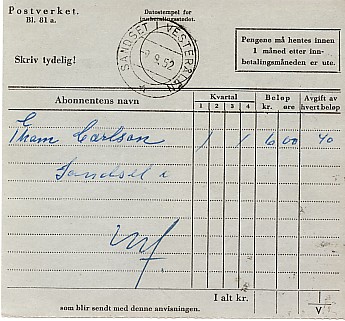 Postverket.
Bl. 81 a.
Datostempel for
innbetalingsstedet.
Skriv tydelig!
SANDSET I VESTERÅLEN
9.9.52
Pengene må hentes innen
1 måned etter inn-
betalingsmåneden er ute.
Abonnentens navn
Kvartal
1 2 3 4
Beløp
kr. øre
Avgift av
hvert beløp
Tham Carlson / / 6 00 40
Sandset i
Vnf
I alt kr.
1
V
som blir sendt med denne anvisningen.